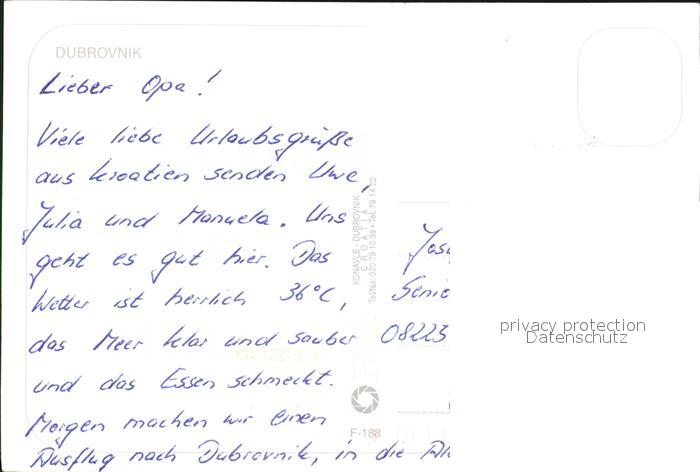 DUBROVNIK
Lieber Opa!
Viele liebe Urlaubsgrüße
aus Kroatien senden Uwe,
Julia und Manuela. Uns
geht es gut hier. Das
Wetter ist herrlich 36°C,
das Meer klar und sauber
und das Essen schmeckt.
Morgen machen wir einen
Ausflug nach Dubrovnik, in die
KONAVLE - DUBROVNIK
CROATIA
Tel/fax: 020 79 10 38 • Tel: 79 14 22
F-188
08223
privacy protection
Datenschutz